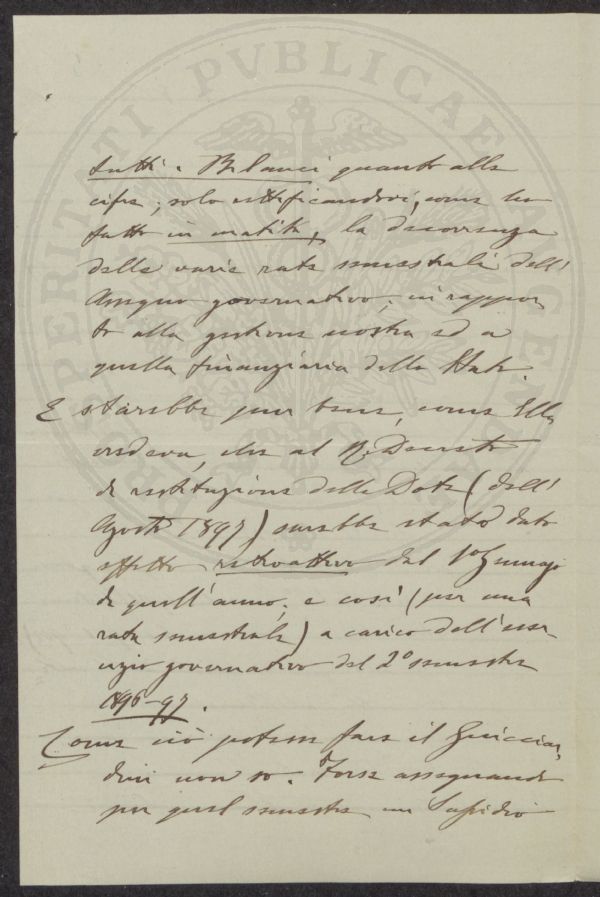 PERITATI PVBLICAE
tutti i Bilanci quanto alle
cifre; solo rettificandovi, come ho
fatto in matita, la decorrenza
delle varie rate semestrali dell'
Assegno governativo, in rappor
to alla gestione nostra ed a
quella finanziaria dello Stato.
E starebbe pur bene, come Ella
vedeva, che al R. Decreto
di restituzione delle Dote (dell'
Agosto 1897) sarebbe stato dato
effetto retroattivo dal 1º Gennajo
di quell'anno; e così (per una
rata semestrale) a carico dell'eser
cizio governativo del 2º semestre
1896-97.
Come ciò potesse fare il Guicciar,
dini non so. Forse assegnando
per quel semestre un Sussidio